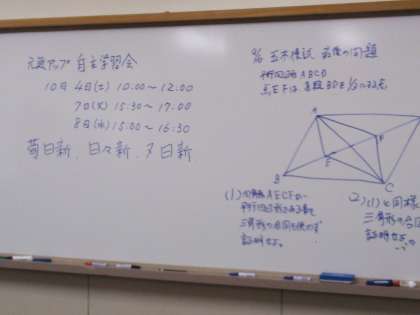 元気アップ 自主学習会
10月 4日(土) 10:00~12:00
7日(火) 15:30~17:00
8日(水) 15:00~16:30
苟日新、日々新、又日新
五木模試 最後の問題
平行四辺形 ABCD
点E,Fは
A
F
E
B
C
(1) 四角形AECFが
平行四辺形である事を
三角形の合同を使わず
証明せよ。
2) (1)と同様
三角形の合同
証明せよ。